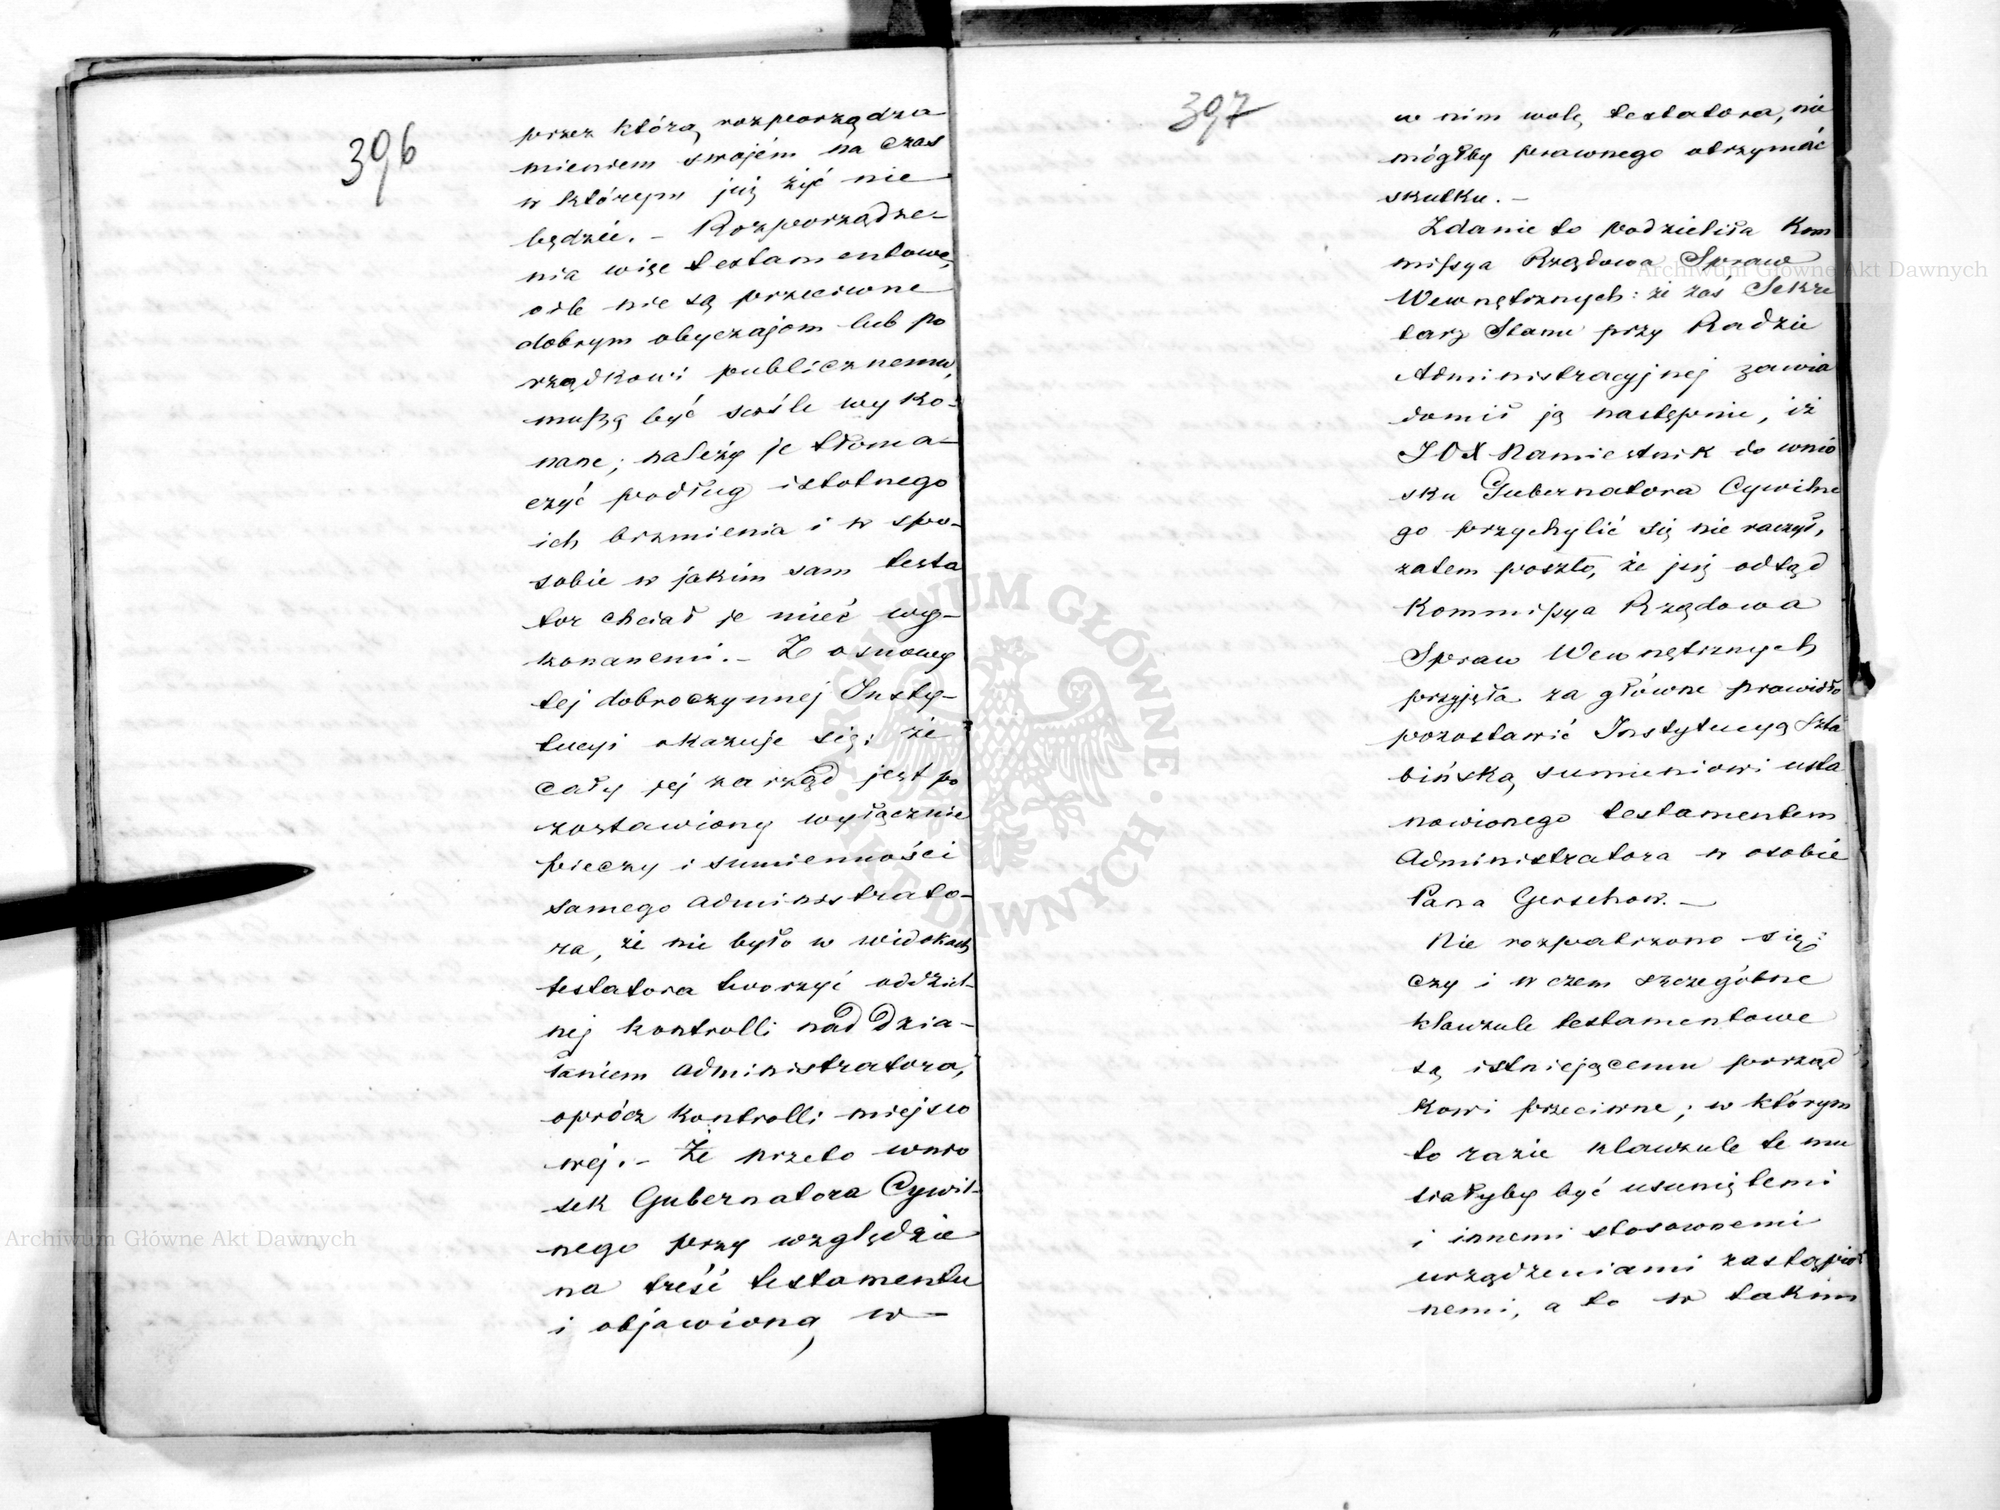 396
przez którą rozporządza
mieniem swojém na czas
w którym już żyć nie
będzie. – Rozporządze-
nia więc testamentowe,
o ile nie są przeciwne
dobrym obyczajom lub po
rządkowi publicznemu,
muszą być ściśle wyko-
nane; należy je tłoma-
czyć podług istotnego
ich brzmienia i w spo-
sobie w jakim sam testa
tor chciał je mieć wy-
konanemi. – Z osnowy
tej dobroczynnej Insty-
tucyi okazuje się; że
cały jej zarząd jest po
zostawiony wyłącznie
pieczy i sumienności
samego administrato-
ra, że nie było w widokach
testatora tworzyć oddziel-
nej kontrolli nad dzia-
łaniem administratora,
oprócz kontrolli miejsco
wej. – Że przeto wnio
sek Gubernatora Cywil-
nego przy względzie
na treść testamentu
i objawioną w
397
w nim wolę testatora, nie
mógłby prawnego otrzymać
skutku. –
Zdanie to podzieliła Kom
missya Rządowa Spraw
Wewnętrznych: że zaś Sekre
tarz Stanu przy Radzie
Administracyjnej zawia
domił ją następnie, iż
JOX Namiestnik do wnio
sku Gubernatora Cywilne
go przychylić się nie raczył,
zatem poszło, że już odtąd
Kommissya Rządowa
Spraw Wewnętrznych
przyjęła za główne prawidło
pozostawić Instytucyą Szta
bińską sumieniowi usta
nowionego testamentem
Administratora w osobie
Pana Gerschow. –
Nie rozpatrzono się:
czy i w czem szczególne
klauzule testamentowe
są istniejącemu porząd
kowi przeciwne; w którym
to razie klauzule te mu
siałyby być usuniętemi
i innemi stosownemi
urządzeniami zastąpio
nemi, a to w takim
Archiwum Główne Akt Dawnych
Archiwum Główne Akt Dawnych
ARCHIWUM GŁÓWNE AKT DAWNYCH